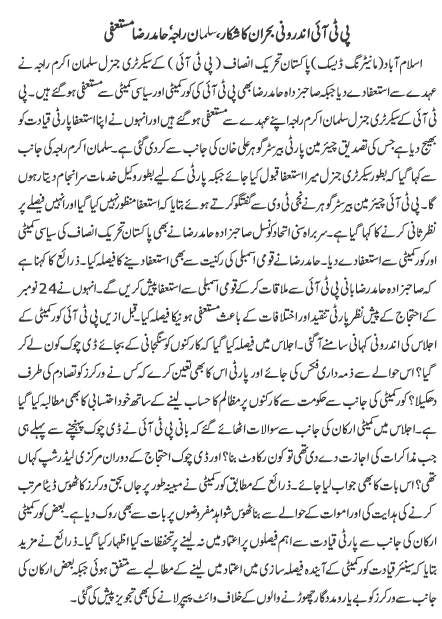 پی ٹی آئی اندرونی بحران کا شکار، سلمان راجہ، حامد رضا مستعفی
اسلام آباد (مانیٹرنگ ڈیسک) پاکستان تحریک انصاف (پی ٹی آئی) کے سیکرٹری جنرل سلمان اکرم راجہ نے
عہدے سے استعفا دے دیا جبکہ صاحبزادہ حامد رضا بھی پی ٹی آئی کی کور کمیٹی اور سیاسی کمیٹی سے مستعفی ہو گئے ہیں۔ پی
ٹی آئی کے سیکرٹری جنرل سلمان اکرم راجہ اپنے عہدے سے مستعفی ہو گئے ہیں اور انہوں نے اپنا استعفا پارٹی قیادت کو
بھیج دیا ہے جس کی تصدیق چیئرمین پارٹی بیرسٹر گوہر علی خان کی جانب سے کر دی گئی ہے۔ سلمان اکرم راجہ کی جانب
سے کہا گیا کہ بطور سیکرٹری جنرل میرا استعفا قبول کیا جائے جبکہ پارٹی کے لیے بطور وکیل خدمات سرانجام دیتا رہوں
گا۔ پی ٹی آئی چیئرمین بیرسٹر گوہر نے نجی ٹی وی سے گفتگو کرتے ہوئے بتایا کہ استعفا منظور نہیں کیا گیا اور انہیں فیصلے پر
نظر ثانی کرنے کا کہا گیا ہے۔ سربراہ سنی اتحاد کونسل صاحبزادہ حامد رضا نے بھی پاکستان تحریک انصاف کی سیاسی کمیٹی
اور کور کمیٹی سے استعفا دے دیا۔ حامد رضا نے قومی اسمبلی کی رکنیت سے بھی استعفا دینے کا فیصلہ کیا۔ ذرائع کا کہنا ہے
کہ صاحبزادہ حامد رضا بانی پی ٹی آئی سے ملاقات کر کے قومی اسمبلی سے استعفا پیش کریں گے۔ انہوں نے 24 نومبر
کے احتجاج کے پیش نظر پارٹی تنقید اور اختلافات کے باعث مستعفی ہونے کا فیصلہ کیا۔ قبل ازیں پی ٹی آئی کور کمیٹی کے
اجلاس کی اندرونی کہانی سامنے آ گئی۔ اجلاس میں فیصلہ کیا گیا کہ کارکنوں کو سنگجانی کے بجائے ڈی چوک کون لے کر
گیا؟ اس حوالے سے ذمہ داری فکس کی جائے اور پارٹی اس کا بھی تعین کرے کہ کس نے ورکرز کو تصادم کی طرف
دھکیلا؟ کور کمیٹی کی جانب سے حکومت سے کارکنوں پر مظالم کا حساب لینے کے ساتھ خود احتسابی کا بھی مطالبہ کیا گیا
ہے۔ اجلاس میں کمیٹی ارکان کی جانب سے سوالات اٹھائے گئے کہ بانی پی ٹی آئی نے ڈی چوک پہنچنے سے پہلے ہی
جب مذاکرات کی اجازت دے دی تھی تو کون رکاوٹ بنا؟ اور ڈی چوک احتجاج کے دوران مرکزی لیڈر شپ کہاں
تھی؟ اس بات کا بھی جواب لیا جائے۔ ذرائع کے مطابق کور کمیٹی نے مبینہ طور پر جاں بحق ورکرز کا ٹھوس ڈیٹا مرتب
کرنے کی ہدایت کی اور اموات کے حوالے سے بنا ٹھوس شواہد مفروضوں پر بات سے بھی روک دیا ہے۔ بعض کور کمیٹی
ارکان کی جانب سے پارٹی قیادت سے اہم فیصلوں پر اعتماد میں نہ لینے پر تحفظات کیا اظہار کیا گیا۔ ذرائع نے مزید
بتایا کہ سینئر قیادت کور کمیٹی کے آیندہ فیصلہ سازی میں اعتماد میں لینے کے مطالبے سے متفق ہوئی جبکہ بعض ارکان کی
جانب سے ورکرز کو بے یارومددگار چھوڑنے والوں کے خلاف وائٹ پیپر لانے کی بھی تجویز پیش کی گئی۔